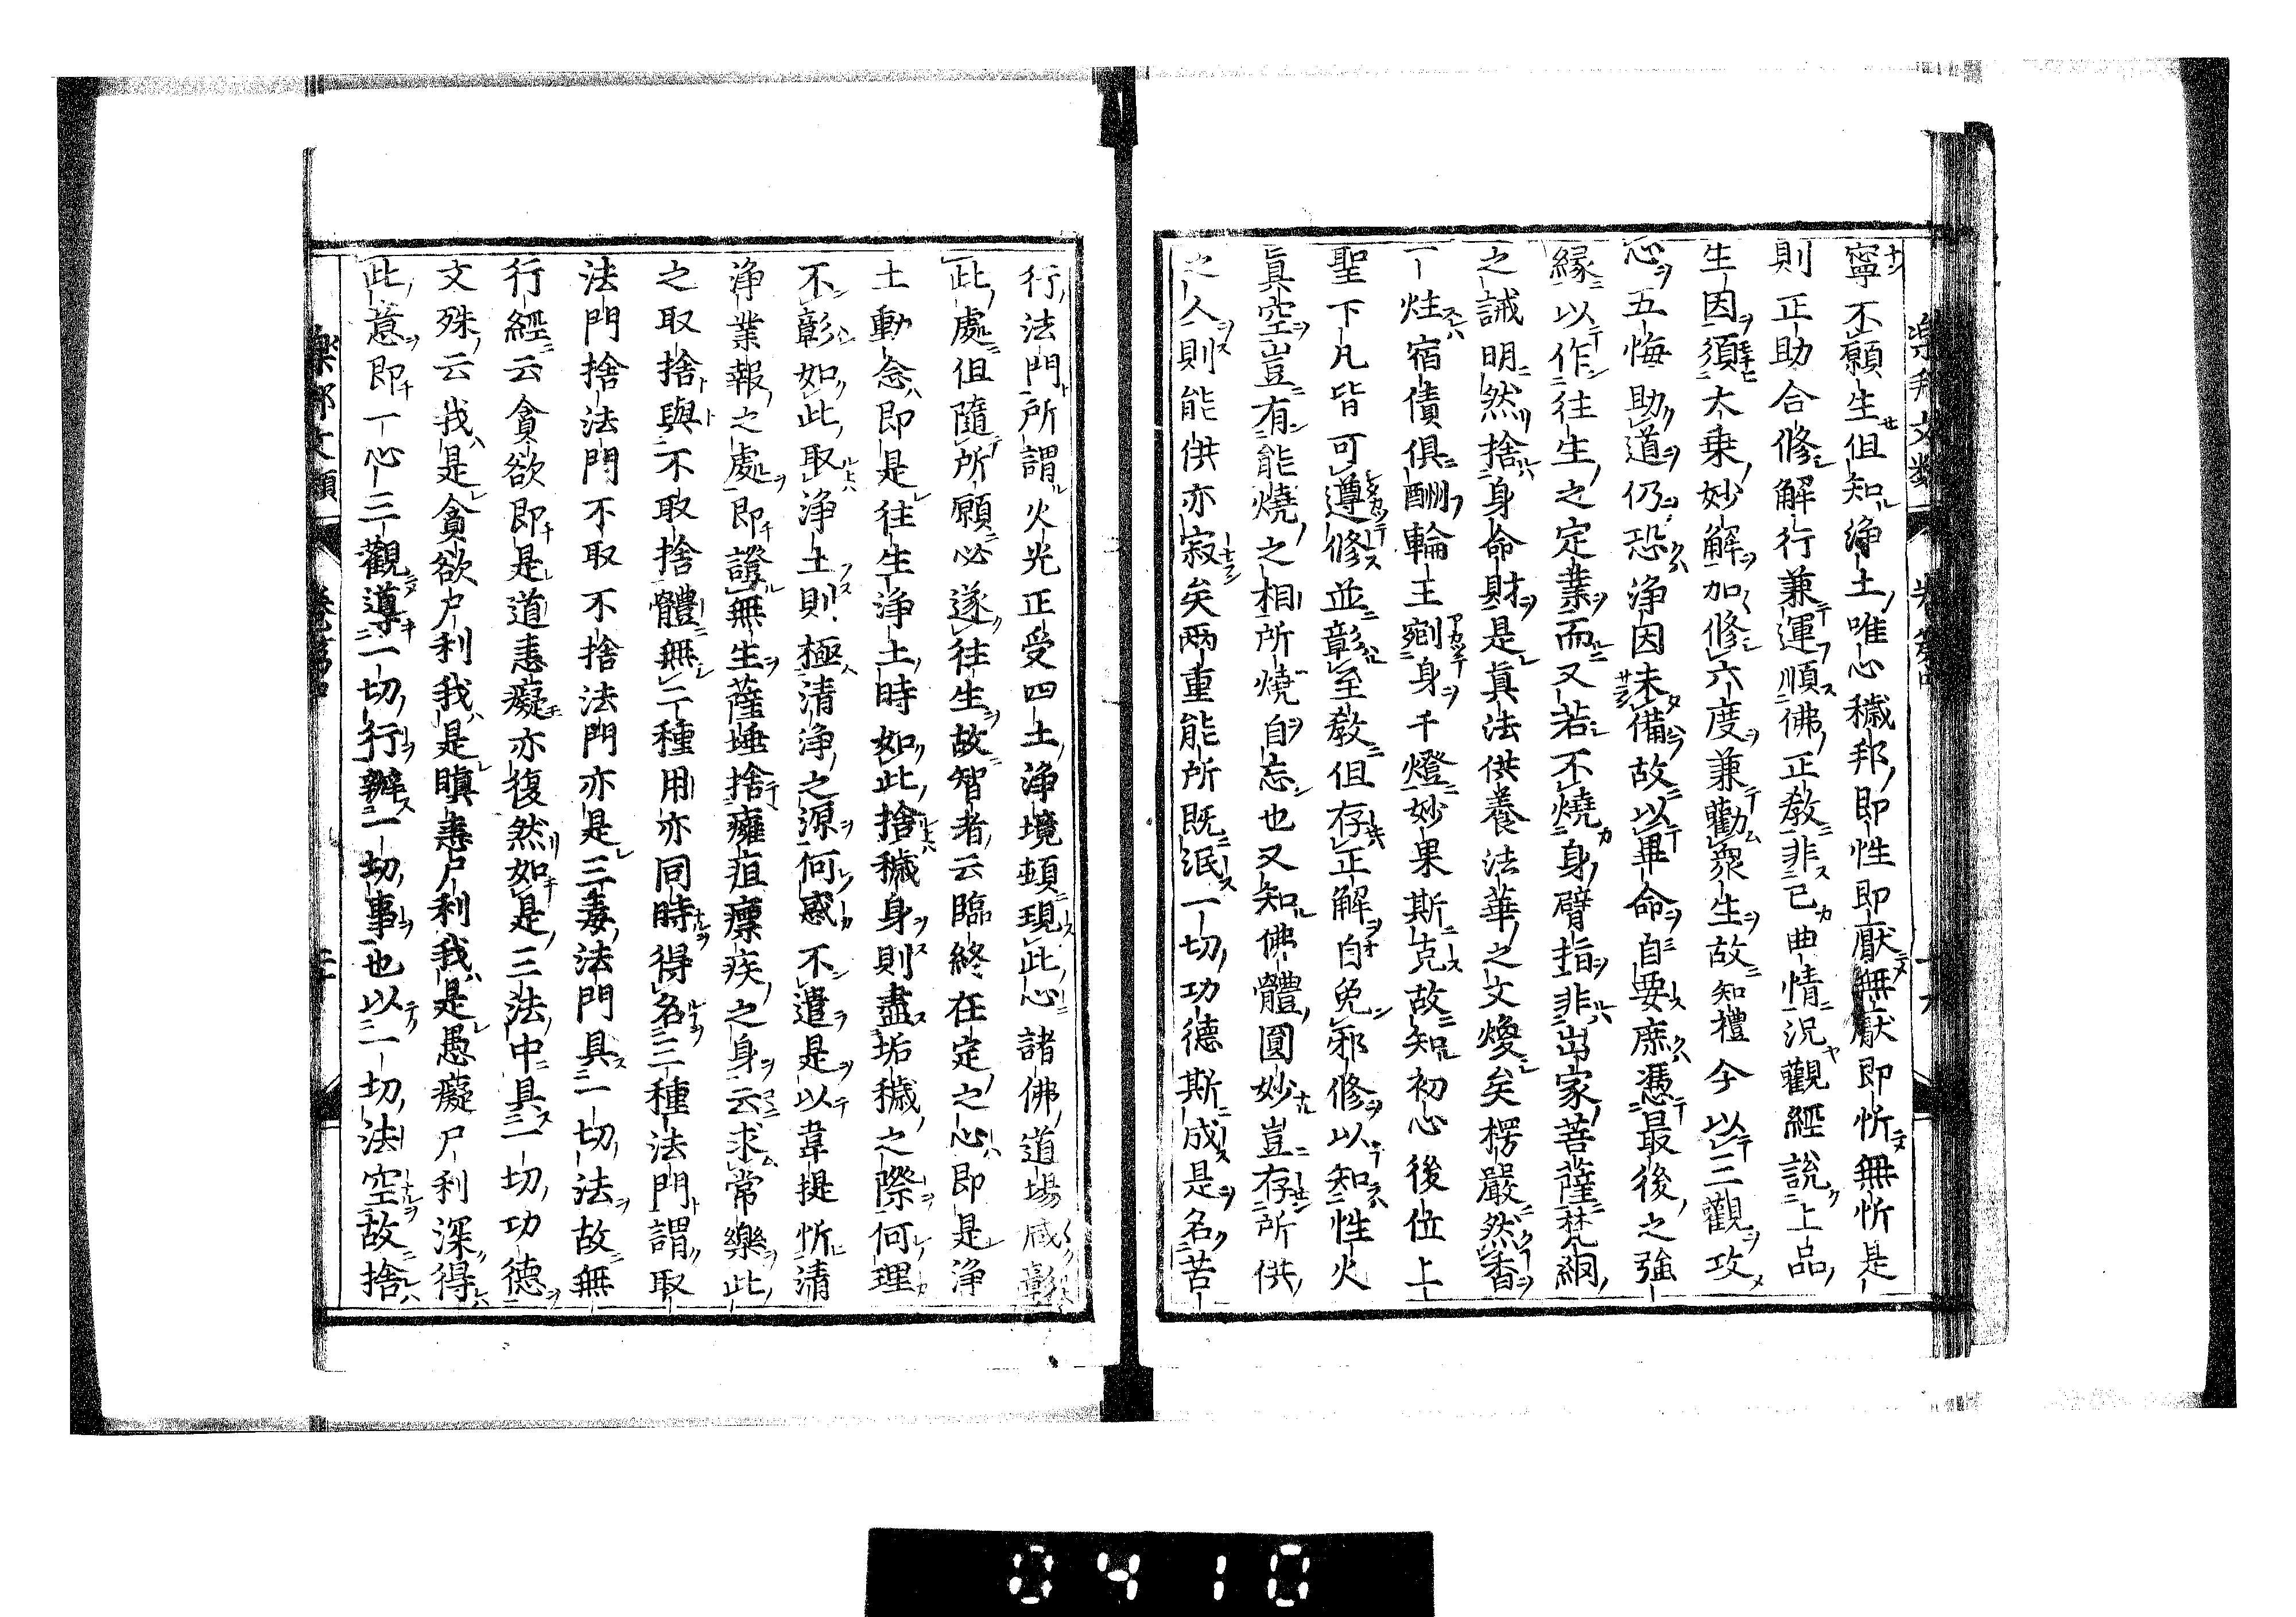 寧不願生但知淨土唯心穢邦即性即厭無厭即忻無忻是
則正助合修解行兼運順佛正教非己曲情況觀經說上品
生因須大乗妙解加修六度兼勸衆生故知禮今以三觀攻
心五悔助道仍恐淨因未備故以畢命自要庶憑最後之強
縁以作往生之定業而又若不燒身臂指非出家菩薩梵網
之誡明然捨身命財是真法供養法華之文煥矣楞嚴然香
一炷宿債俱酬輪王剜身千燈妙果斯克故知初心後位上
聖下凡皆可遵修並彰至教但存正解自免邪修以知性火
真空豈有能燒之相所燒自忘也又知佛體圓妙豈存所供
之人則能供亦寂矣兩重能所既泯一切功德斯成是名苦
行法門所謂火光正受四土淨境頓現此心諸佛道場咸彰
此處但隨所願必遂往生故智者云臨終在定之心即是淨
土動念即是往生淨土時如此捨穢身則盡垢穢之際何理
不彰如此取淨土則極清淨之源何惑不遣是以韋提忻清
淨業報之處即證無生薩埵捨癰疽瘭疾之身云求常樂此
之取捨與不取捨體無二種用亦同時得名三種法門謂取
法門捨法門不取不捨法門亦是三毒法門具一切法故無
行經云貪欲即是道恚癡亦復然如是三法中具一切功德
文殊云我是貪欲尸利我是瞋恚尸利我是愚癡尸利深得
此意即一心三觀導一切行辦一切事也以一切法空故捨
樂邦文類